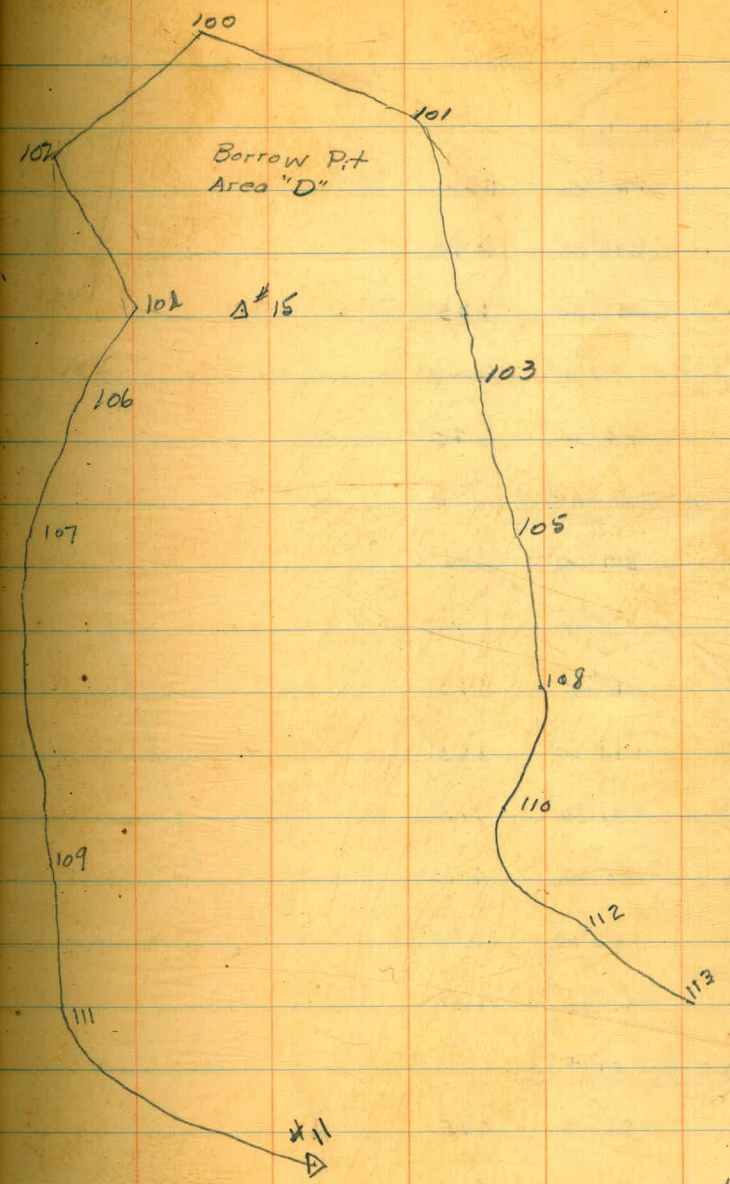 100
101
102
Borrow Pit
Area "D"
△ #15
103
106
105
107
108
110
109
112
113
111
#11